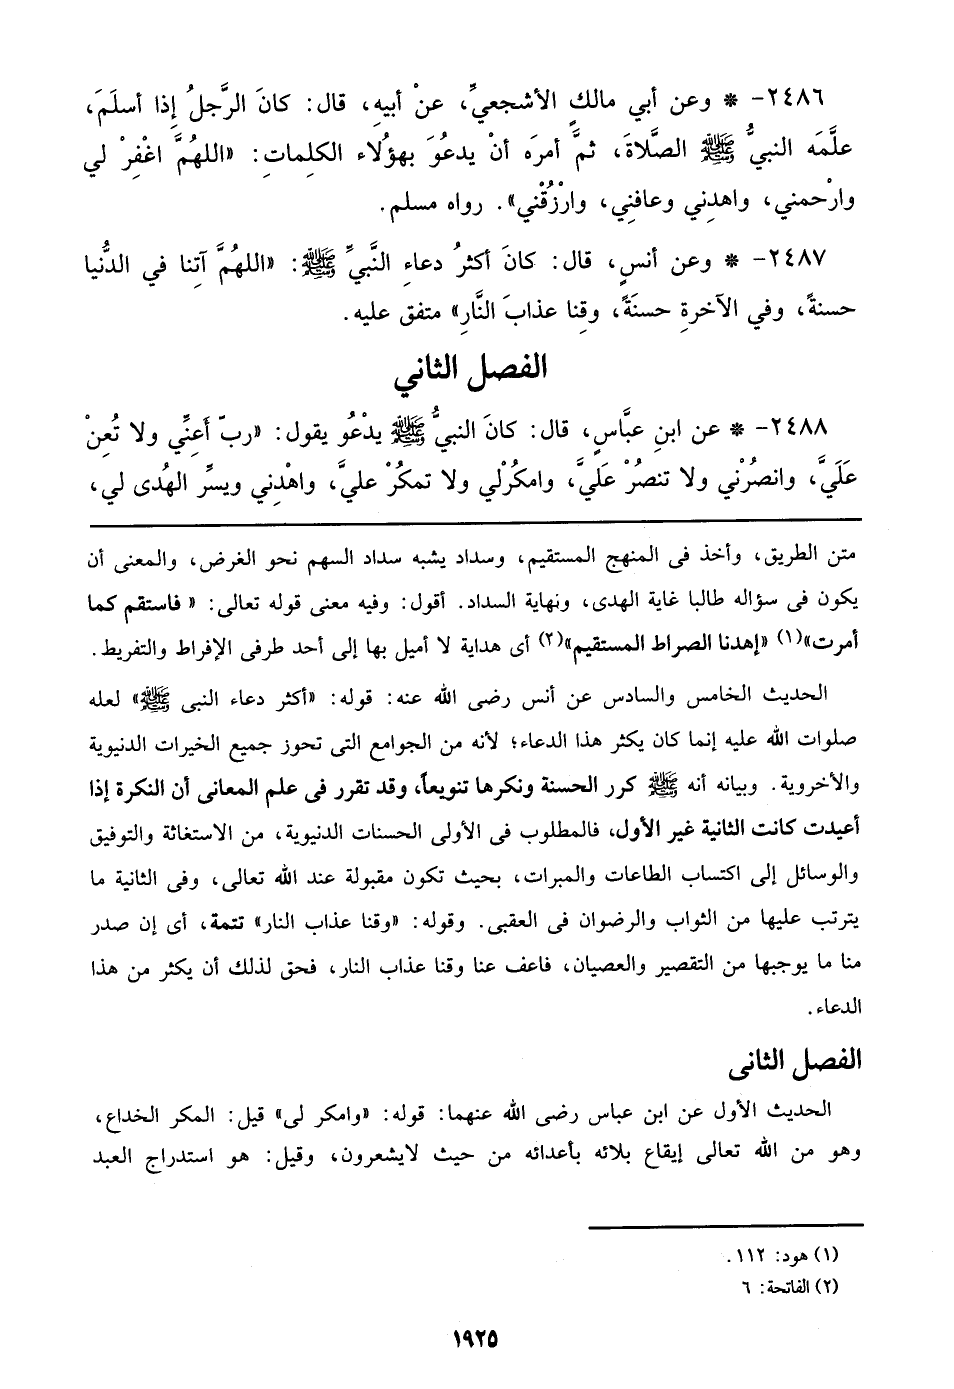 ٢٤٨٦- * وعن أبي مالكٍ الأشجعيِّ، عنْ أبيهِ، قال: كانَ الرَّجلُ إِذا أسلَمَ،
علَّمَه النبيُّ ﷺ الصَّلاةَ، ثمَّ أمرَه أنْ يدعُوَ بهؤلاء الكلِماتِ: «اللهُمَّ اغْفِرْ لي
وارْحمني، واهدِني وعافنِي، وارْزُقْني». رواه مسلم.
٢٤٨٧- * وعن أنسٍ، قال: كانَ أكثرُ دعاءِ النَّبيِّ ﷺ: «اللهُمَّ آتِنا في الدُّنيا
حسنةً، وفي الآخرةِ حسنَةً، وقِنا عذابَ النَّارِ» متفق عليه.
الفصل الثاني
٢٤٨٨- * عن ابنِ عبَّاسٍ، قال: كانَ النبيُّ ﷺ يدْعُو يقول: «ربّ أَعنِّي ولا تُعِنْ
عَلَيَّ، وانصُرْني ولا تنصُرْ عَليَّ، وامكُرْلي ولا تمكُرْ عليَّ، واهْدِني ويسرِّ الهُدى لي،
متن الطريق، وأخذ فى المنهج المستقيم، وسداد يشبه سداد السهم نحو الغرض، والمعنى أن
يكون فى سؤاله طالبا غاية الهدى، ونهاية السداد. أقول: وفيه معنى قوله تعالى: « فاستقم كما
أمرت»(١) «إهدنا الصراط المستقيم»(٢) أى هداية لا أميل بها إلى أحد طرفى الإفراط والتفريط.
الحديث الخامس والسادس عن أنس رضى الله عنه: قوله: «أكثر دعاء النبى ﷺ» لعله
صلوات الله عليه إنما كان يكثر هذا الدعاء؛ لأنه من الجوامع التى تحوز جميع الخيرات الدنيوية
والأخروية. وبيانه أنه ﷺ كرر الحسنة ونكرها تنويعاً، وقد تقرر فى علم المعانى أن النكرة إذا
أعيدت كانت الثانية غير الأول، فالمطلوب فى الأولى الحسنات الدنيوية، من الاستغاثة والتوفيق
والوسائل إلى اكتساب الطاعات والمبرات، بحيث تكون مقبولة عند الله تعالى، وفى الثانية ما
يترتب عليها من الثواب والرضوان فى العقبى. وقوله: «وقنا عذاب النار» تتمة، أى إن صدر
منا ما يوجبها من التقصير والعصيان، فاعف عنا وقنا عذاب النار، فحق لذلك أن يكثر من هذا
الدعاء.
الفصل الثانى
الحديث الأول عن ابن عباس رضى الله عنهما: قوله: «وامكر لى» قيل: المكر الخداع،
وهو من الله تعالى إيقاع بلائه بأعدائه من حيث لايشعرون، وقيل: هو استدراج العبد
(١) هود: ١١٢.
(٢) الفاتحة: ٦
١٩٢٥